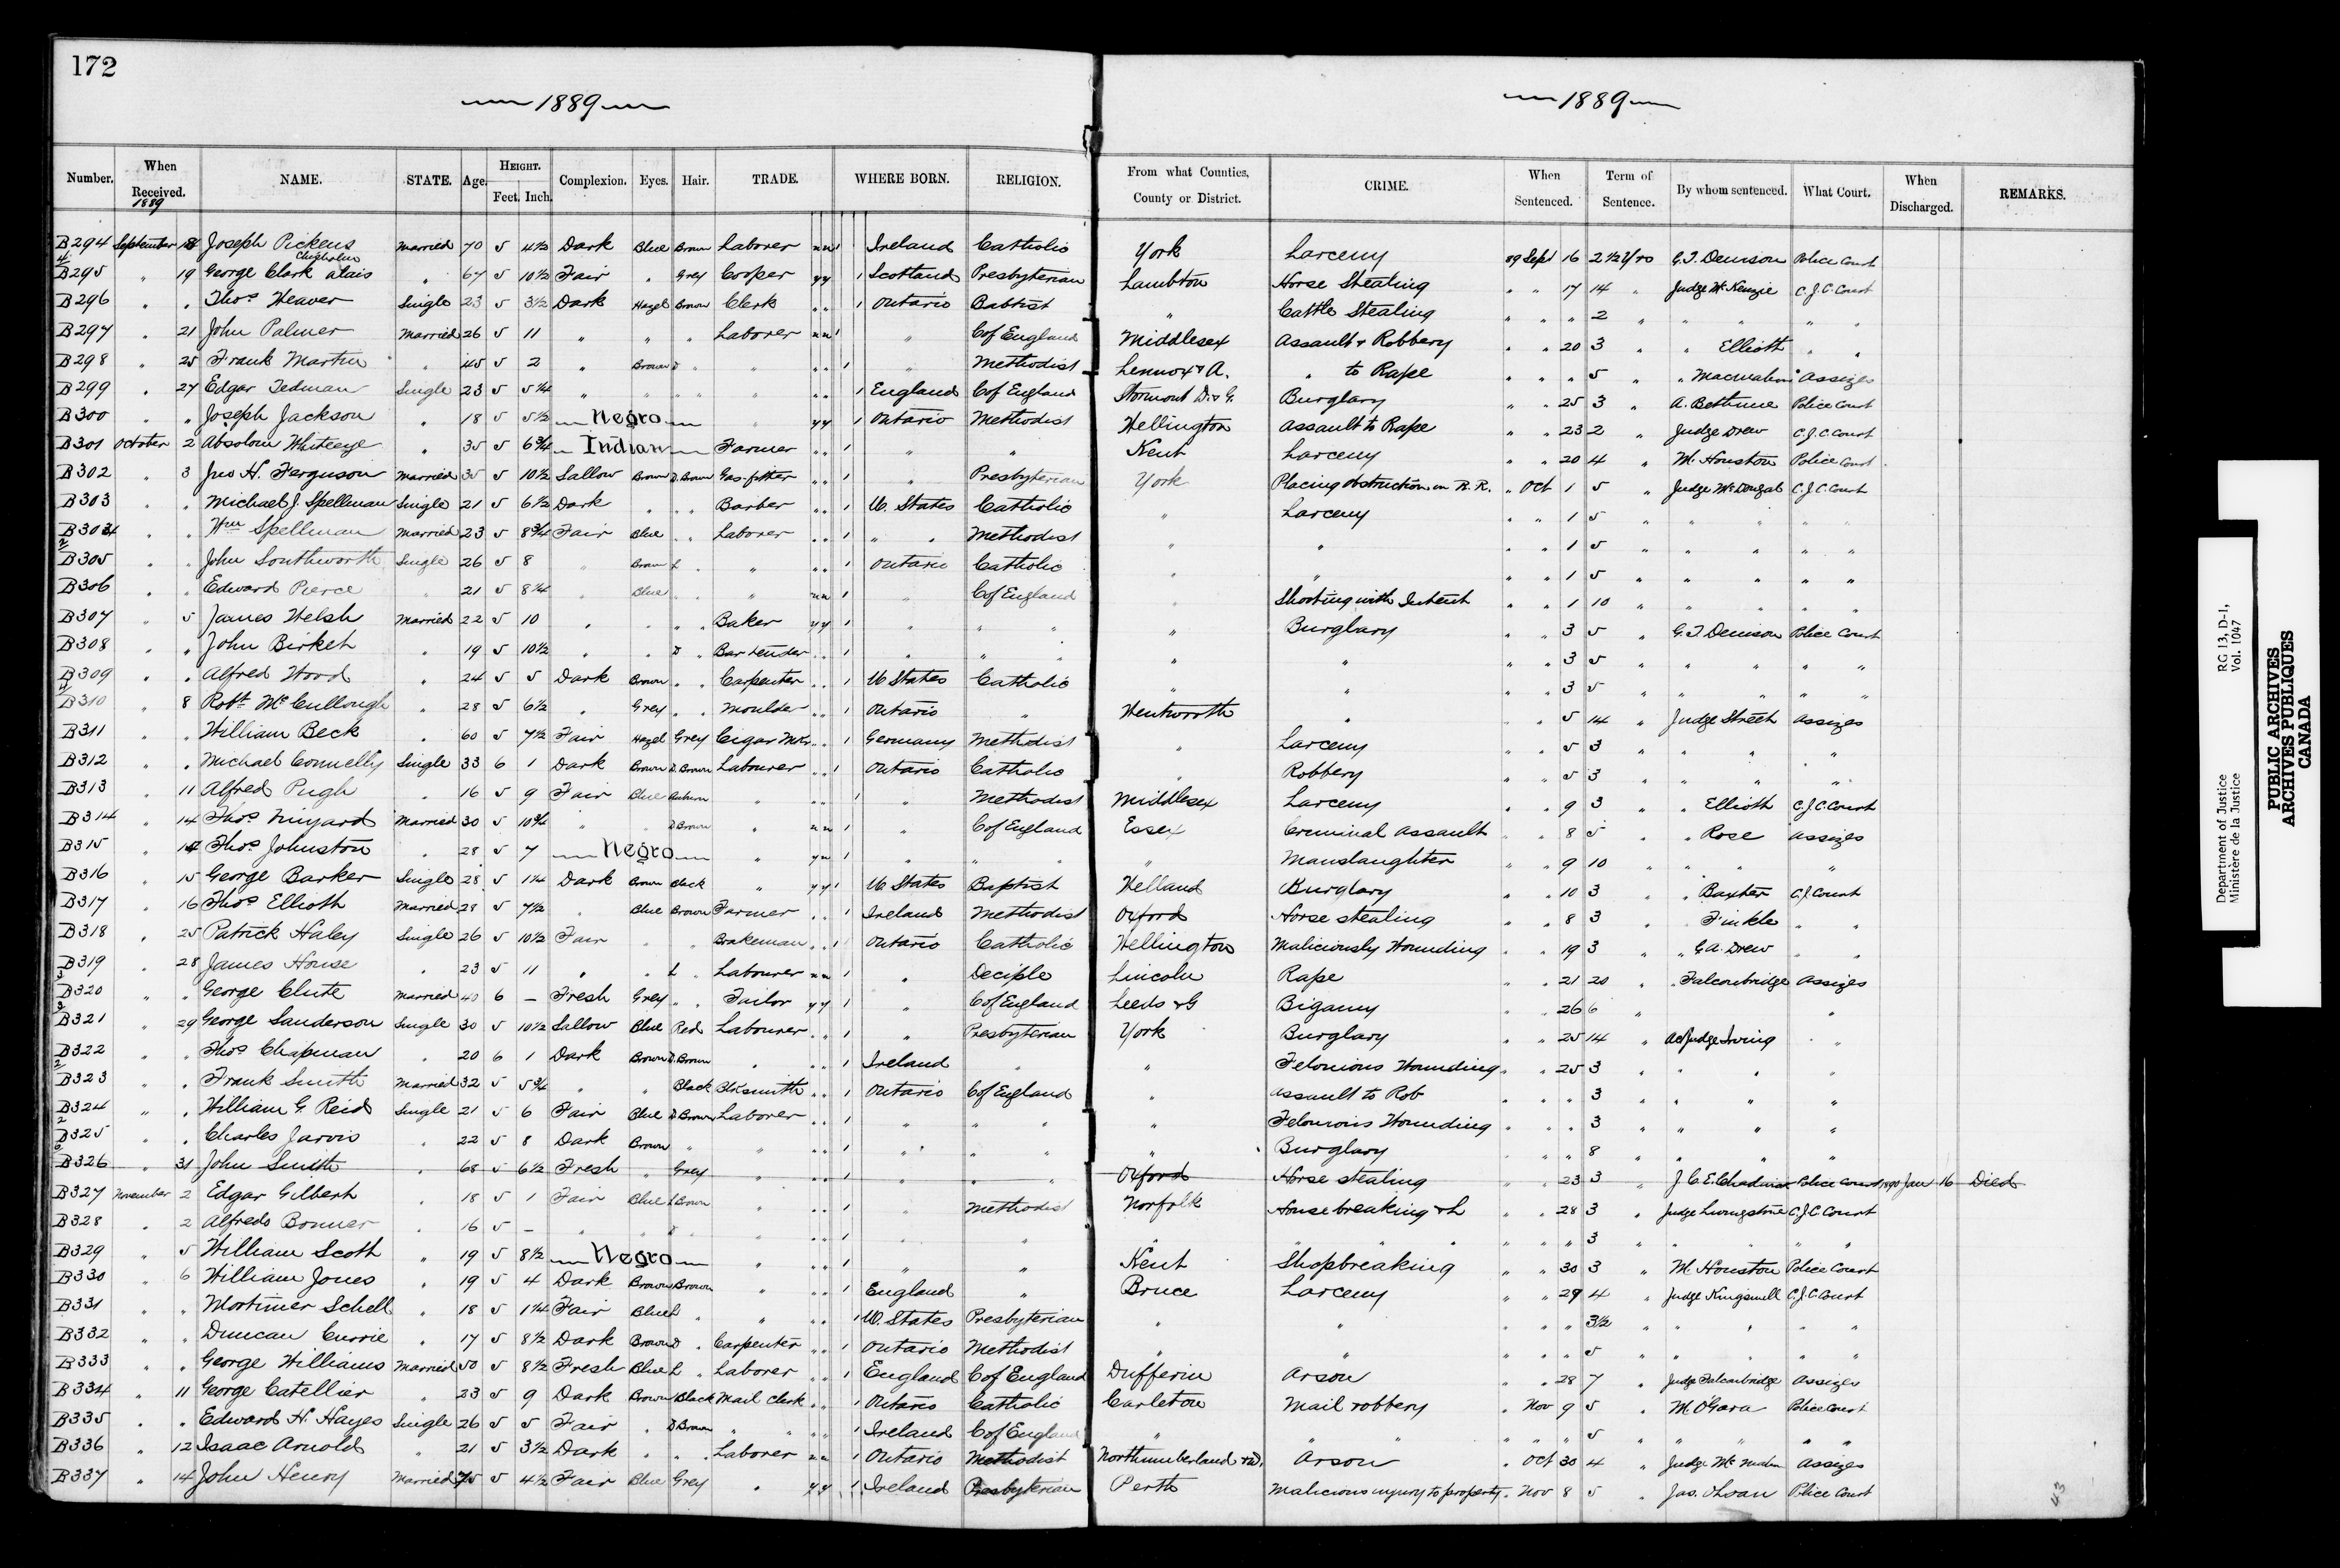 172
1889
1889
Number. When Received. 1889 NAME. STATE. Age. HEIGHT. Feet. Inch. Complexion. Eyes. Hair. TRADE. WHERE BORN. RELIGION. From what Counties, County or District. CRIME. When Sentenced. Term of Sentence. By whom sentenced. What Court. When Discharged. REMARKS.
B294 September 18 Joseph Pickens Married 70 5 4½ Dark Blue Brown Laborer n n 1 Ireland Catholic York Larceny 89 Sept 16 2½ Yrs G.T. Denison Police Court
B295 " 19 George Clark alais Chisholm " 67 5 10½ Fair " Grey Cooper y y 1 Scotland Presbyterian Lambton Horse Stealing " " 17 14 " Judge McKenzie C.J.C. Court
B296 " " Thos Weaver Single 23 5 3½ Dark Hazel Brown Clerk " " 1 Ontario Babtist " Cattle Stealing " " " 2 " " " " "
B297 " 21 John Palmer Married 26 5 11 " " " Laborer n n 1 " C of England Middlesex Assault & Robbery " " 20 3 " " Elliott " "
B298 " 25 Frank Martin " 45 5 2 " Brown D " " " " 1 Methodist Lennox & A. " to Rape " " " 5 " " Assizes
B299 " 27 Edgar Tedman Single 23 5 5¼ " " " " " " " 1 England C of England Stormont D. & G. Burglary " " 25 3 " A. Bethune Police Court
B300 " " Joseph Jackson " 18 5 5½ Negro " y y 1 Ontario Methodist Wellington Assault to Rape " " 23 2 " Judge Drew C.J.C. Court
B301 October 2 Absolom Whiteeye " 35 5 6¾ Indian Farmer " " 1 " " Kent Larceny " " 20 4 " M. Houston Police Court
B302 " 3 Jno H. Ferguson Married 35 5 10½ Sallow Brown D. Brown Gas-fitter " " 1 " Presbyterian York Placing obstruction on R.R. " Oct 1 5 " Judge McDougal C.J.C. Court
B303 " " Michael J. Spellman Single 21 5 6½ Dark " " " Barber " " 1 U. States Catholic " Larceny " " 1 5 " " " " "
B304 " " Wm Spellman Married 23 5 8¾ Fair Blue " " Laborer " " 1 " " Methodist " " " " 1 5 " " " " "
B305 " " John Southworth Single 26 5 8 " Brown L " " " " 1 Ontario Catholic " " " " 1 5 " " " " "
B306 " " Edward Pierce " 21 5 8¼ " Blue " " " n n 1 " C of England " Shooting with Intent " " 1 10 " " " " "
B307 " 5 James Welsh Married 22 5 10 " " " " Baker y y 1 " " " " Burglary " " 3 5 " G.T. Denison Police Court
B308 " " John Birket " 19 5 10½ " " D " Bar tender " " 1 " " " " " " " 3 5 " " " " "
B309 " " Alfred Wood " 24 5 5 Dark Brown " " Carpenter " " 1 U States Catholic " " " " 3 5 " " " " "
B310 " 8 Robt McCullough " 28 5 6½ " Grey " " Moulder " " 1 Ontario " Wentworth " " " 5 14 " Judge Street Assizes
B311 " " William Beck " 60 5 7½ Fair Hazel Grey Cigar Mkr " " 1 Germany Methodist " Larceny " " 5 3 " " " "
B312 " " Michael Connelly Single 33 6 1 Dark Brown D. Brown Labourer " " 1 Ontario Catholic " Robbery " " 5 3 " " " "
B313 " 11 Alfred Pugh " 16 5 9 Fair Blue Auburn " " " 1 " Methodist Middlesex Larceny " " 9 3 " " Elliott C.J.C. Court
B314 " 14 Thos Minyard Married 30 5 10¾ " " D Brown " n n 1 " C of England Essex Criminal Assault " " 8 5 " " Rose Assizes
B315 " 14 Thos Johnston " 28 5 7 Negro " y n 1 " " " " Manslaughter " " 9 10 " " " "
B316 " 15 George Barker Single 28 5 1¼ Dark Brown Black " y y 1 U States Baptist Welland Burglary " " 10 3 " " Baxter C.J. Court
B317 " 16 Thos Elliott Married 28 5 7½ " Blue Brown Farmer " " 1 Ireland Methodist Oxford Horse stealing " " 8 3 " " Finkle " "
B318 " 25 Patrick Haley Single 26 5 10½ Fair " " Brakeman " " 1 Ontario Catholic Wellington Maliciously Wounding " " 19 3 " " G A. Drew " "
B319 " 28 James House " 23 5 11 " " L " Labourer n n 1 " Deciple Lincoln Rape " " 21 20 " " Falconbridge Assizes
B320 " " George Clute Married 40 6 – Fresh Grey " " Tailor y y 1 " C of England Leeds & G Bigamy " " 26 6 " " "
B321 " 29 George Sanderson Single 30 5 10½ Sallow Blue Red Labourer " " 1 " Presbyterian York Burglary " " 25 14 " Act Judge Irving " "
B322 " " Thos Chapman " 20 6 1 Dark Brown D. Brown " " " 1 Ireland " " Felonious Wounding " " 25 3 " " " "
B323 " " Frank Smith Married 32 5 5¾ " " Black Blksmith " " 1 Ontario C of England " Assault to Rob " " " 3 " " " "
B324 " " William G. Reid Single 21 5 6 Fair Blue D Brown Laborer " " 1 " " " " Felonious Wounding " " " 3 " " " "
B325 " " Charles Jarvis " 22 5 8 Dark Brown " " " " 1 " " " " " Burglary " " " 8 " " " "
B326 " 31 John Smith " 68 5 6½ Fresh " Grey " " " 1 " " " Oxford Horse stealing " " 23 3 " J. C. E. Chadwick Police Court 1890 Jan 16 Died
B327 November 2 Edgar Gilbert " 18 5 1 Fair Blue L Brown " " " 1 " Methodist Norfolk Housebreaking & L " " 28 3 " Judge Livingstone C.J.C. Court
B328 " 2 Alfred Bonner " 16 5 – " " D " " " " 1 " " " " " " " " 3 " " " " "
B329 " 5 William Scott " 19 5 8½ Negro " " " 1 " " Kent Shopbreaking " " 30 3 " M. Houston Police Court
B330 " 6 William Jones " 19 5 4 Dark Brown Brown " " " 1 England " Bruce Larceny " " 29 4 " Judge Kingsmill C.J.C. Court
B331 " " Mortimer Schell " 18 5 1¼ Fair Blue L " " " " 1 U. States Presbyterian " " " " " 3½ " " " " "
B332 " " Duncan Currie " 17 5 8½ Dark Brown D " Carpenter " " 1 Ontario Methodist " " " " " 5 " " " " "
B333 " " George Williams Married 50 5 8½ Fresh Blue L " Laborer " " 1 England C of England Dufferin Arson " " 28 7 " Judge Falconbridge Assizes
B334 " 11 George Catellier " 23 5 9 Dark Brown Black Mail clerk " " 1 Ontario Catholic Carleton Mail robbery " Nov 9 5 " M. O'Gara Police Court
B335 " " Edward H. Hayes Single 26 5 5 Fair " D Brown " " " " 1 Ireland C of England " " " " " " 5 " " " " "
B336 " 12 Isaac Arnold " 21 5 3½ Dark " " " Laborer n n 1 Ontario Methodist Northumberland & D. Arson " Oct 30 4 " Judge McMahon Assizes
B337 " 14 John Henry Married 75 5 4½ Fair Blue Grey " y y 1 Ireland Presbyterian Perth Malicious injury to property " Nov 8 5 " Jas. Police Court
43
Department of Justice RG 13, D-1,
Ministère de la Justice Vol. 1047
PUBLIC ARCHIVES
ARCHIVES PUBLIQUES
CANADA